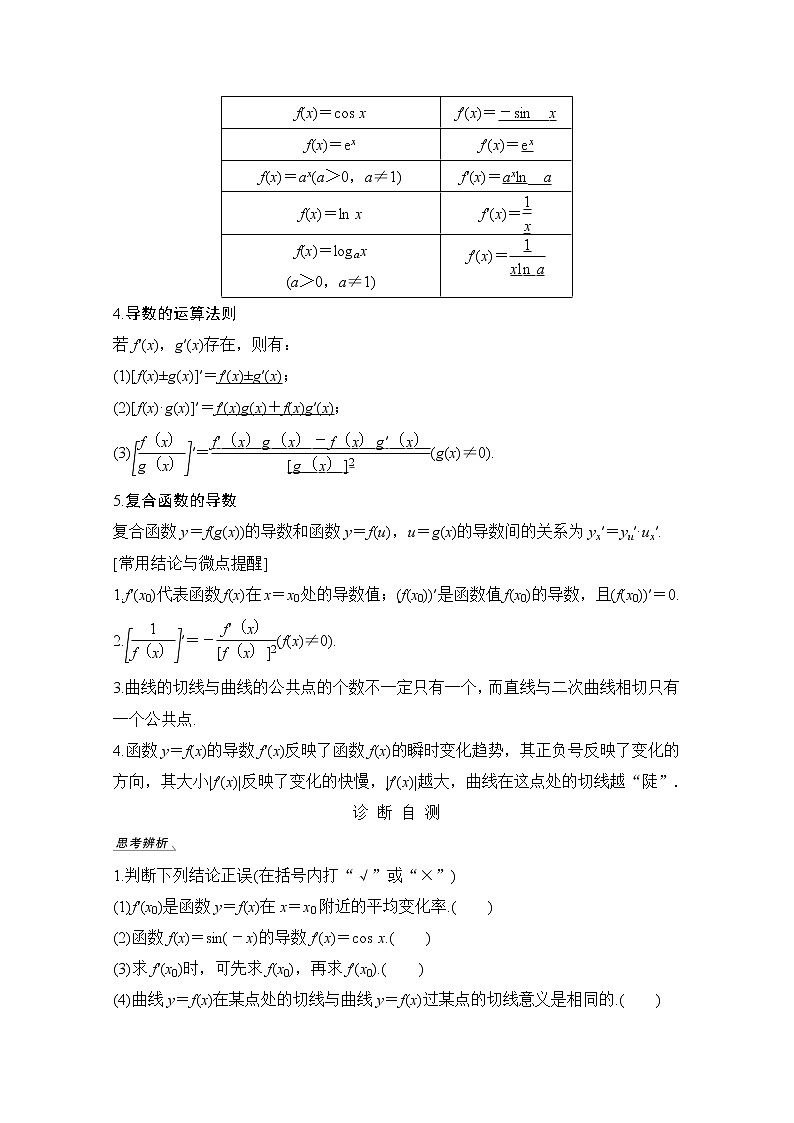 f(x)＝cos x f′(x)＝－sin x
f(x)＝eˣ f′(x)＝eˣ
f(x)＝aˣ(a＞0，a≠1) f′(x)＝aˣln a
f(x)＝ln x f′(x)＝1/x
f(x)＝logₐx f′(x)＝1/(xln a)
(a＞0，a≠1)
4.导数的运算法则
若 f′(x)，g′(x)存在，则有：
(1)[f(x)±g(x)]′＝f′(x)±g′(x)；
(2)[f(x)·g(x)]′＝f′(x)g(x)＋f(x)g′(x)；
(3)[f（x）/g（x）]′＝(f′（x）g（x）－f（x）g′（x）)/[g（x）]²(g(x)≠0).
5.复合函数的导数
复合函数 y＝f(g(x))的导数和函数 y＝f(u)，u＝g(x)的导数间的关系为 yₓ′＝yᵤ′·uₓ′.
[常用结论与微点提醒]
1.f′(x₀)代表函数 f(x)在 x＝x₀处的导数值；(f(x₀))′是函数值 f(x₀)的导数，且(f(x₀))′＝0.
2.[1/f（x）]′＝－f′（x）/[f（x）]²(f(x)≠0).
3.曲线的切线与曲线的公共点的个数不一定只有一个，而直线与二次曲线相切只有
一个公共点.
4.函数 y＝f(x)的导数 f′(x)反映了函数 f(x)的瞬时变化趋势，其正负号反映了变化的
方向，其大小|f′(x)|反映了变化的快慢，|f′(x)|越大，曲线在这点处的切线越“陡”.
诊 断 自 测
思考辨析
1.判断下列结论正误(在括号内打“√”或“×”)
(1)f′(x₀)是函数 y＝f(x)在 x＝x₀附近的平均变化率.(　　)
(2)函数 f(x)＝sin(－x)的导数 f′(x)＝cos x.(　　)
(3)求 f′(x₀)时，可先求 f(x₀)，再求 f′(x₀).(　　)
(4)曲线 y＝f(x)在某点处的切线与曲线 y＝f(x)过某点的切线意义是相同的.(　　)